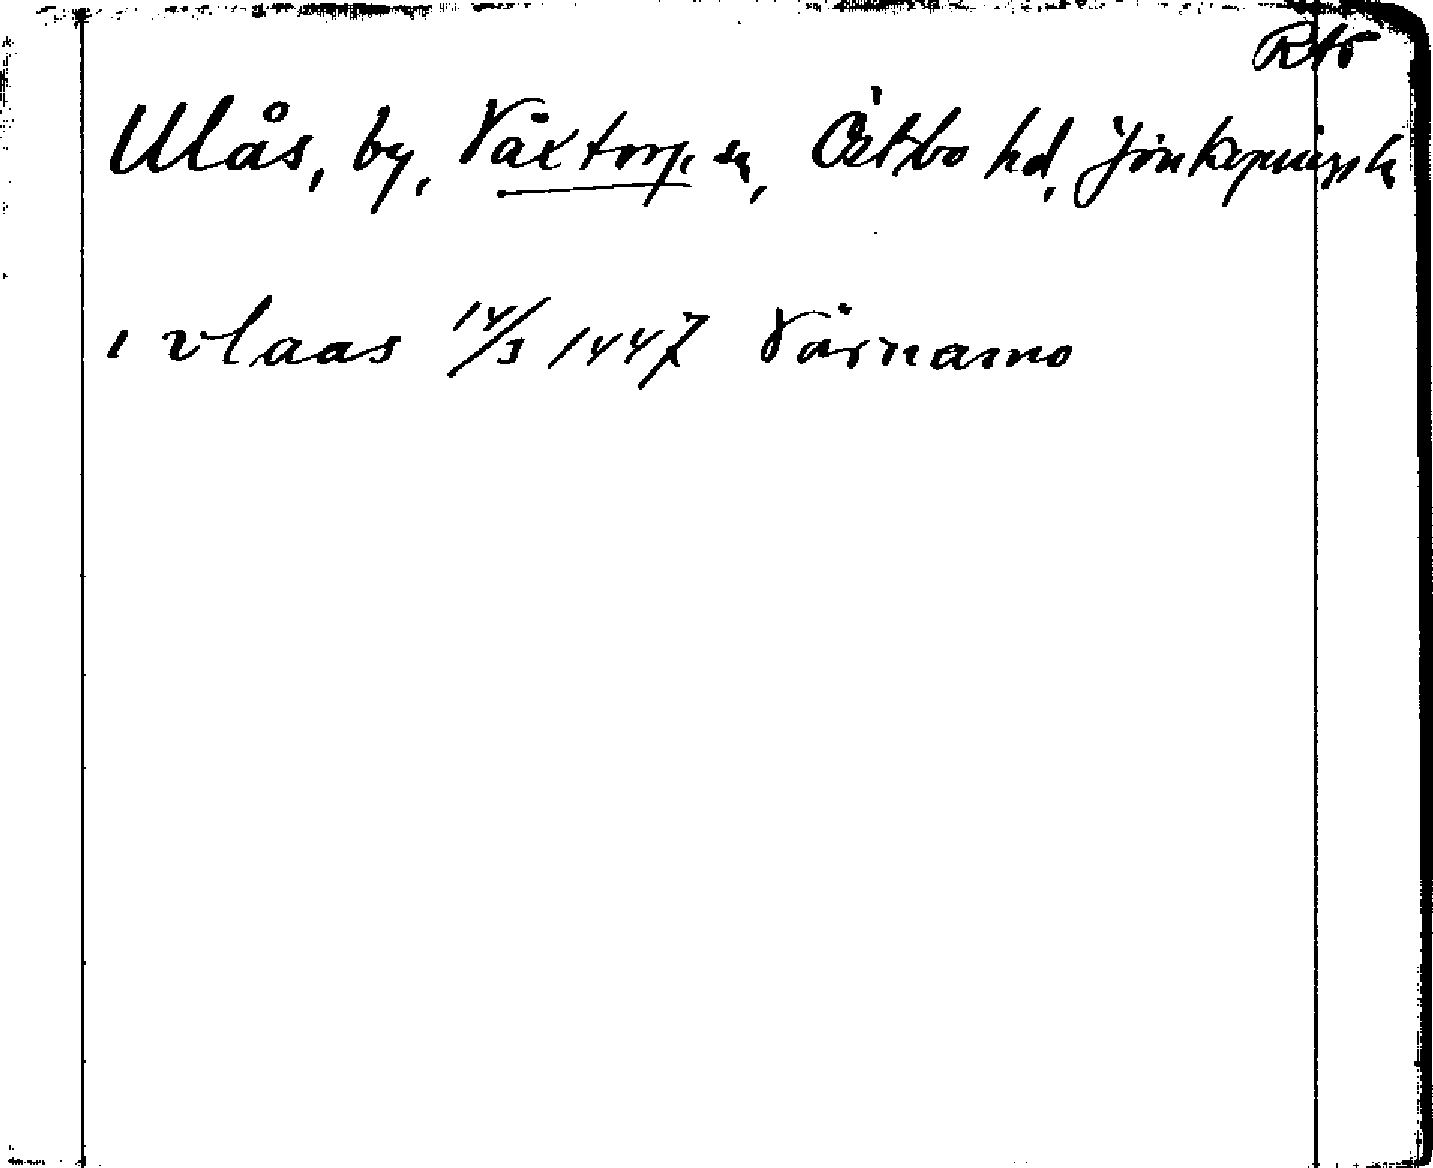 Ulås, by, Växtorps sn, Östbo hd, Jönköpings l.
i vlaas 14/3 1447 Värnamo